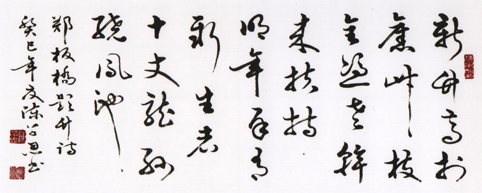 新竹高於
舊竹枝
全憑老幹
為扶持
明年再有
新生者
十丈龍孫
繞鳳池
鄭板橋題竹詩
癸巳年夏陳思書